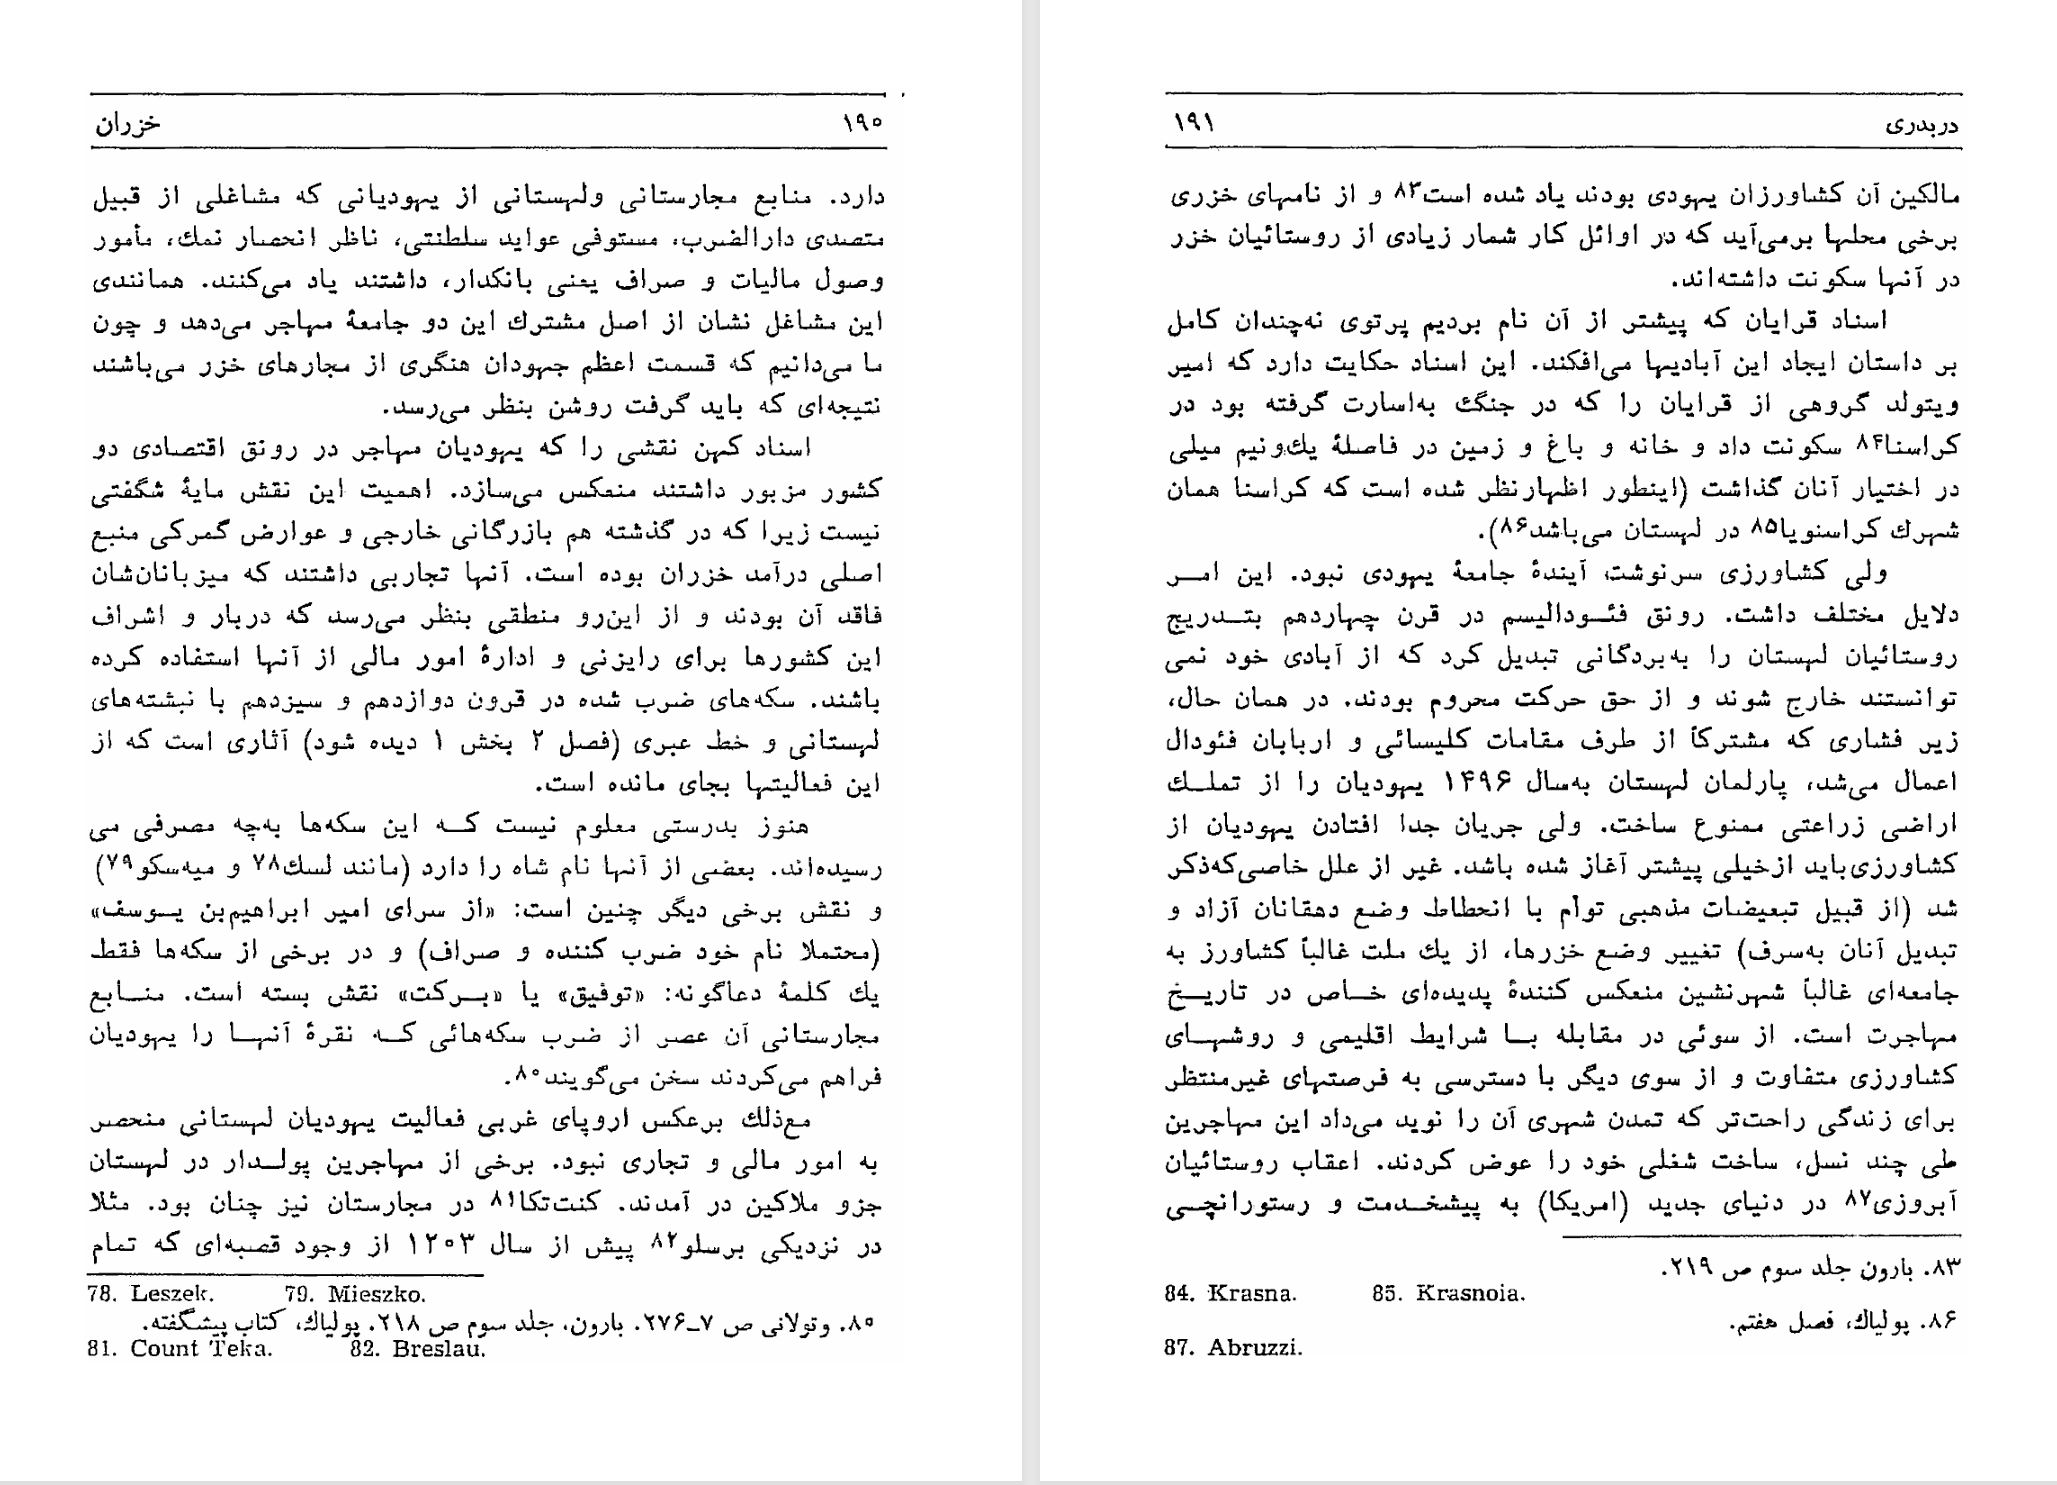 ۱۹۰ خزران
دارد. منابع مجارستانی ولهستانی از یهودیانی که مشاغلی از قبیل
متصدی دارالضرب، مستوفی عواید سلطنتی، ناظر انحصار نمک، مأمور
وصول مالیات و صراف یعنی بانکدار، داشتند یاد می‌کنند. همانندی
این مشاغل نشان از اصل مشترک این دو جامعهٔ مهاجر می‌دهد و چون
ما می‌دانیم که قسمت اعظم جهودان هنگری از مجارهای خزر می‌باشند
نتیجه‌ای که باید گرفت روشن بنظر می‌رسد.
اسناد کهن نقشی را که یهودیان مهاجر در رونق اقتصادی دو
کشور مزبور داشتند منعکس می‌سازد. اهمیت این نقش مایهٔ شگفتی
نیست زیرا که در گذشته هم بازرگانی خارجی و عوارض گمرکی منبع
اصلی درآمد خزران بوده است. آنها تجاربی داشتند که میزبانان‌شان
فاقد آن بودند و از این‌رو منطقی بنظر می‌رسد که دربار و اشراف
این کشورها برای رایزنی و ادارهٔ امور مالی از آنها استفاده کرده
باشند. سکه‌های ضرب شده در قرون دوازدهم و سیزدهم با نبشته‌های
لهستانی و خط عبری (فصل ۲ بخش ۱ دیده شود) آثاری است که از
این فعالیتها بجای مانده است.
هنوز بدرستی معلوم نیست کـه این سکه‌ها به‌چه مصرفی می
رسیده‌اند. بعضی از آنها نام شاه را دارد (مانند لسک۷۸ و میه‌سکو۷۹)
و نقش برخی دیگر چنین است: «از سرای امیر ابراهیم‌بن یـوسف»
(محتملا نام خود ضرب کننده و صراف) و در برخی از سکه‌ها فقط
یک کلمهٔ دعاگونه: «توفیق» یا «بـرکت» نقش بسته است. منـابع
مجارستانی آن عصر از ضرب سکه‌هائی کـه نقرهٔ آنهـا را یهودیان
فراهم می‌کردند سخن می‌گویند۸۰.
مع‌ذلک برعکس اروپای غربی فعالیت یهودیان لهستانی منحصر
به امور مالی و تجاری نبود. برخی از مهاجرین پولـدار در لهستان
جزو ملاکین در آمدند. کنت‌تکا۸۱ در مجارستان نیز چنان بود. مثلا
در نزدیکی برسلو۸۲ پیش از سال ۱۲۰۳ از وجود قصبه‌ای که تمام
78. Leszek. 79. Mieszko.
۸۰. وتولانی ص ۷ــ۲۷۶. بارون، جلد سوم ص ۲۱۸. پولیاک، کتاب پیشگفته.
81. Count Teka. 82. Breslau.
دربدری ۱۹۱
مالکین آن کشاورزان یهودی بودند یاد شده است۸۳ و از نامهای خزری
برخی محلها برمی‌آید که در اوائل کار شمار زیادی از روستائیان خزر
در آنها سکونت داشته‌اند.
اسناد قرایان که پیشتر از آن نام بردیم پرتوی نه‌چندان کامل
بر داستان ایجاد این آبادیها می‌افکند. این اسناد حکایت دارد که امیر
ویتولد گروهی از قرایان را که در جنگ به‌اسارت گرفته بود در
کراسنا۸۴ سکونت داد و خانه و باغ و زمین در فاصلهٔ یک‌ونیم میلی
در اختیار آنان گذاشت (اینطور اظهارنظر شده است که کراسنا همان
شهرک کراسنویا۸۵ در لهستان می‌باشد۸۶).
ولی کشاورزی سرنوشت آیندهٔ جامعهٔ یهودی نبود. این امـر
دلایل مختلف داشت. رونق فئـودالیسم در قرن چهاردهم بتـدریج
روستائیان لهستان را به‌بردگانی تبدیل کرد که از آبادی خود نمی
توانستند خارج شوند و از حق حرکت محروم بودند. در همان حال،
زیر فشاری که مشترکاً از طرف مقامات کلیسائی و اربابان فئودال
اعمال می‌شد، پارلمان لهستان به‌سال ۱۴۹۶ یهودیان را از تملـک
اراضی زراعتی ممنوع ساخت. ولی جریان جدا افتادن یهودیان از
کشاورزی‌باید ازخیلی پیشتر آغاز شده باشد. غیر از علل خاصی‌که‌ذکر
شد (از قبیل تبعیضات مذهبی توأم با انحطاط وضع دهقانان آزاد و
تبدیل آنان به‌سرف) تغییر وضع خزرها، از یک ملت غالباً کشاورز به
جامعه‌ای غالباً شهرنشین منعکس کنندهٔ پدیده‌ای خـاص در تاریـخ
مهاجرت است. از سوئی در مقابله بـا شرایط اقلیمی و روشهـای
کشاورزی متفاوت و از سوی دیگر با دسترسی به فرصتهای غیرمنتظر
برای زندگی راحت‌تر که تمدن شهری آن را نوید می‌داد این مهاجرین
طی چند نسل، ساخت شغلی خود را عوض کردند. اعقاب روستائیان
آبروزی۸۷ در دنیای جدید (امریکا) به پیشخـدمت و رستورانچـی
۸۳. بارون جلد سوم ص ۲۱۹.
84. Krasna. 85. Krasnoia.
۸۶. پولیاک، فصل هفتم.
87. Abruzzi.